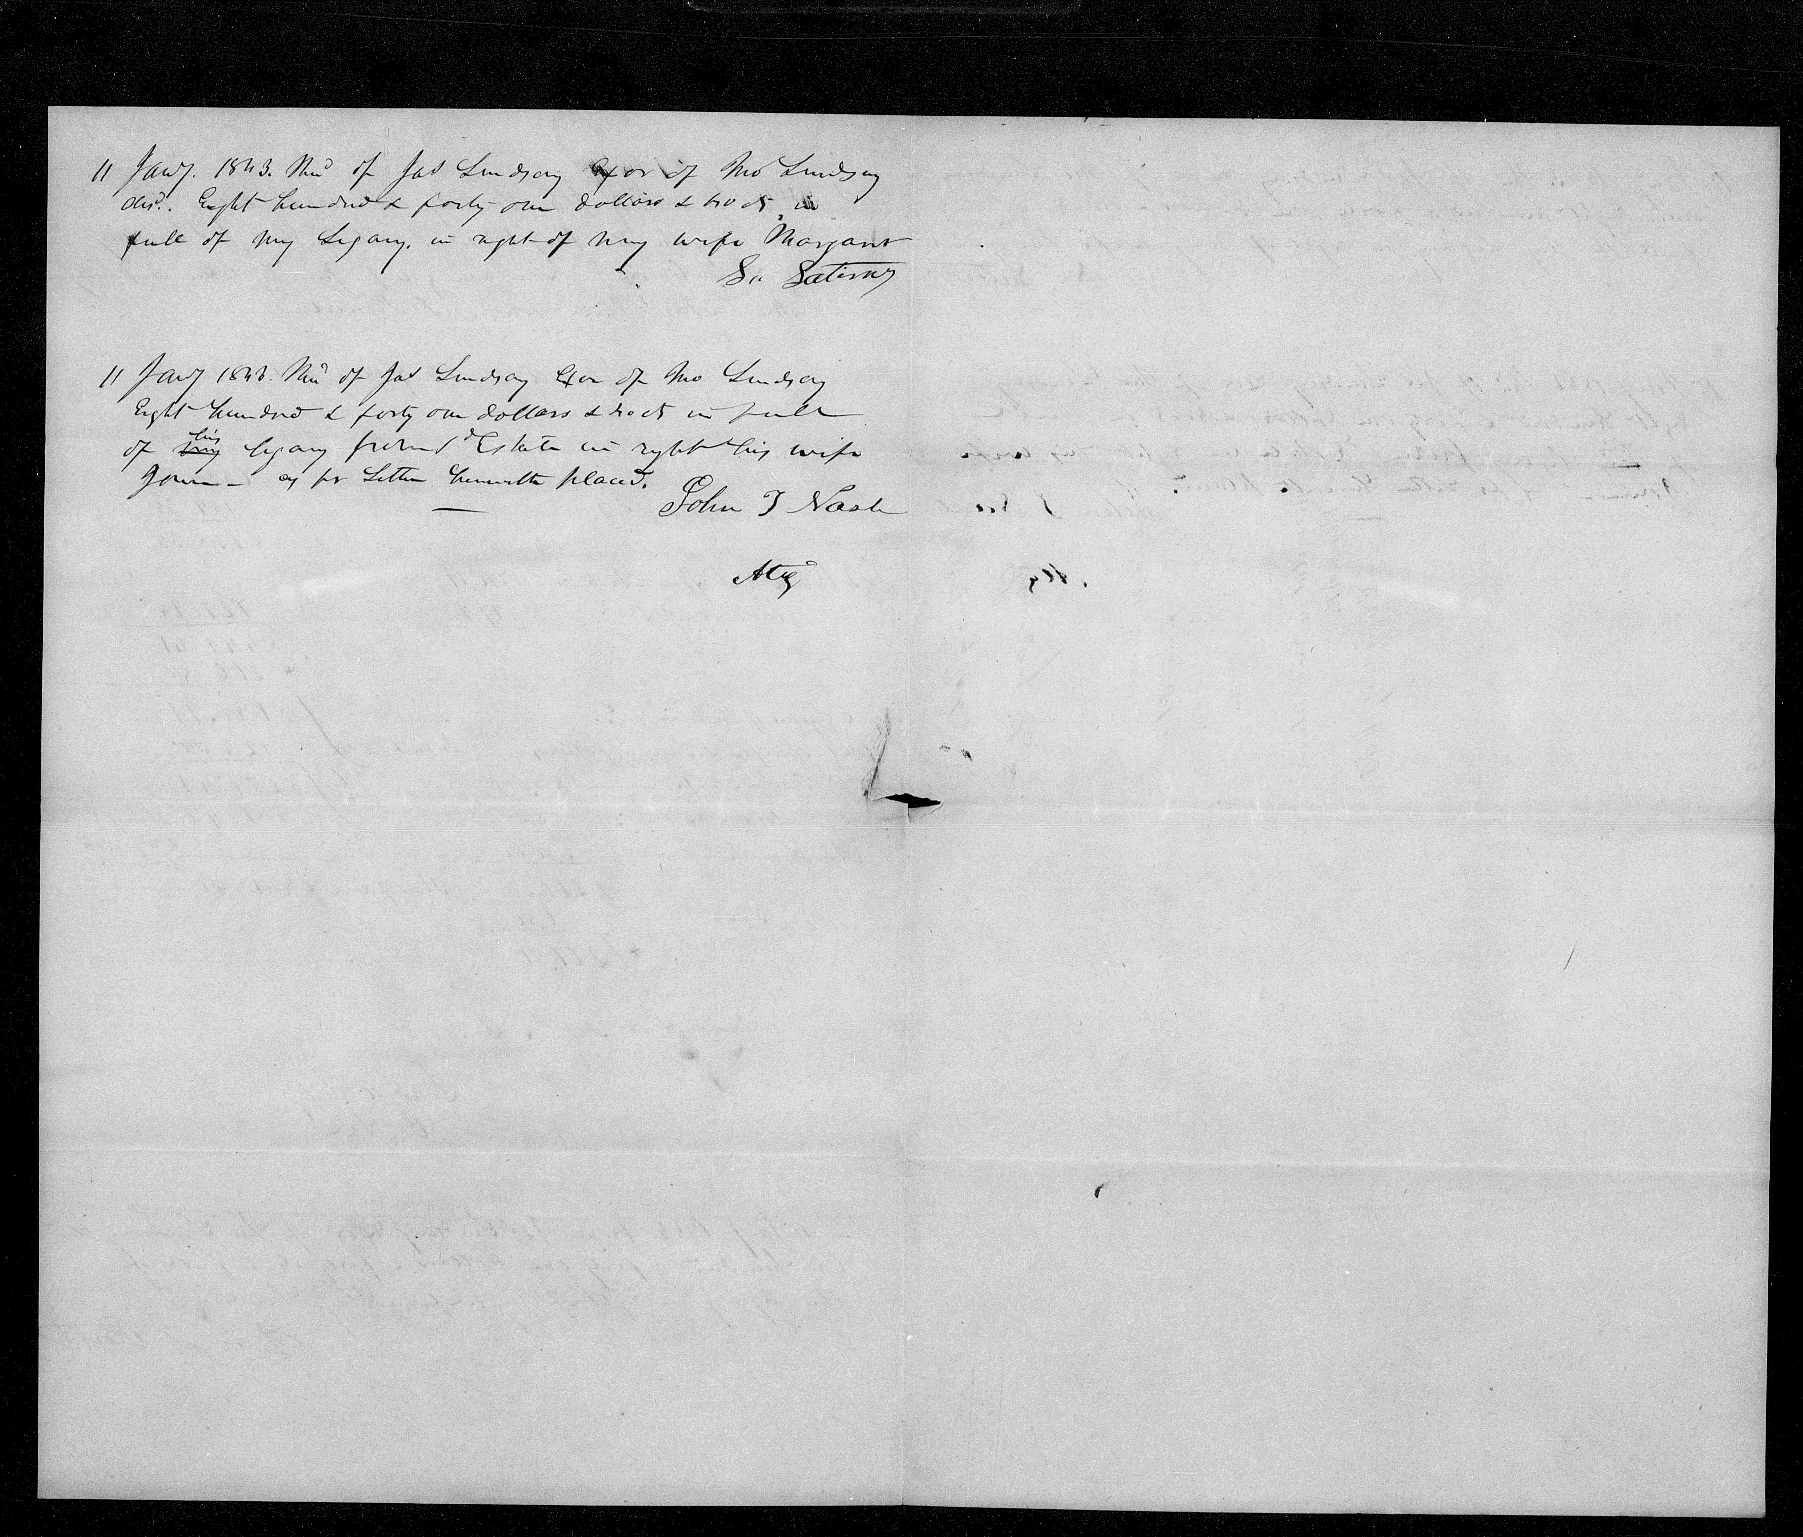 11 Jany. 1843. Recd of Jas Lindsay Exor of Thos Lindsay
decd. Eight hundred & forty one dollars & 
full of my Legacy. in right of my wife Margaret
11 Jany 1843. Recd of Jas Lindsay Exor of Thos Lindsay
Eight hundred & forty one dollars & in full
of my his legacy from sd Estate in right his wife
as pr Letter herewith placed.
John T Nash
Atty